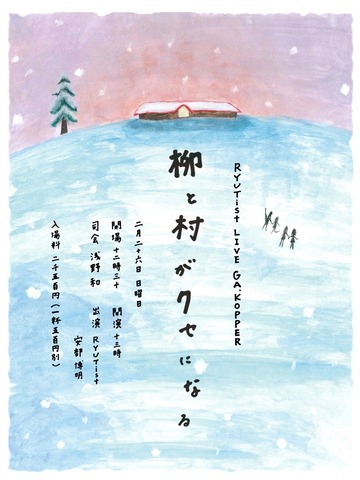 RYUTist LIVE GA.KOPPER
柳と村がクセになる
二月二十六日 日曜日
開場 十二時三十 開演 十三時
司会 浅野和 出演 RYUTist
安部博明
入場料 二千五百円(一杯五百円別)